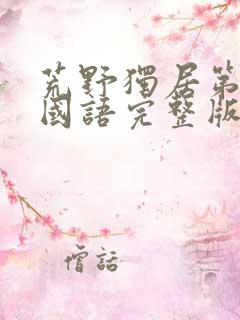 荒野獨居第
國語完整版
僧話